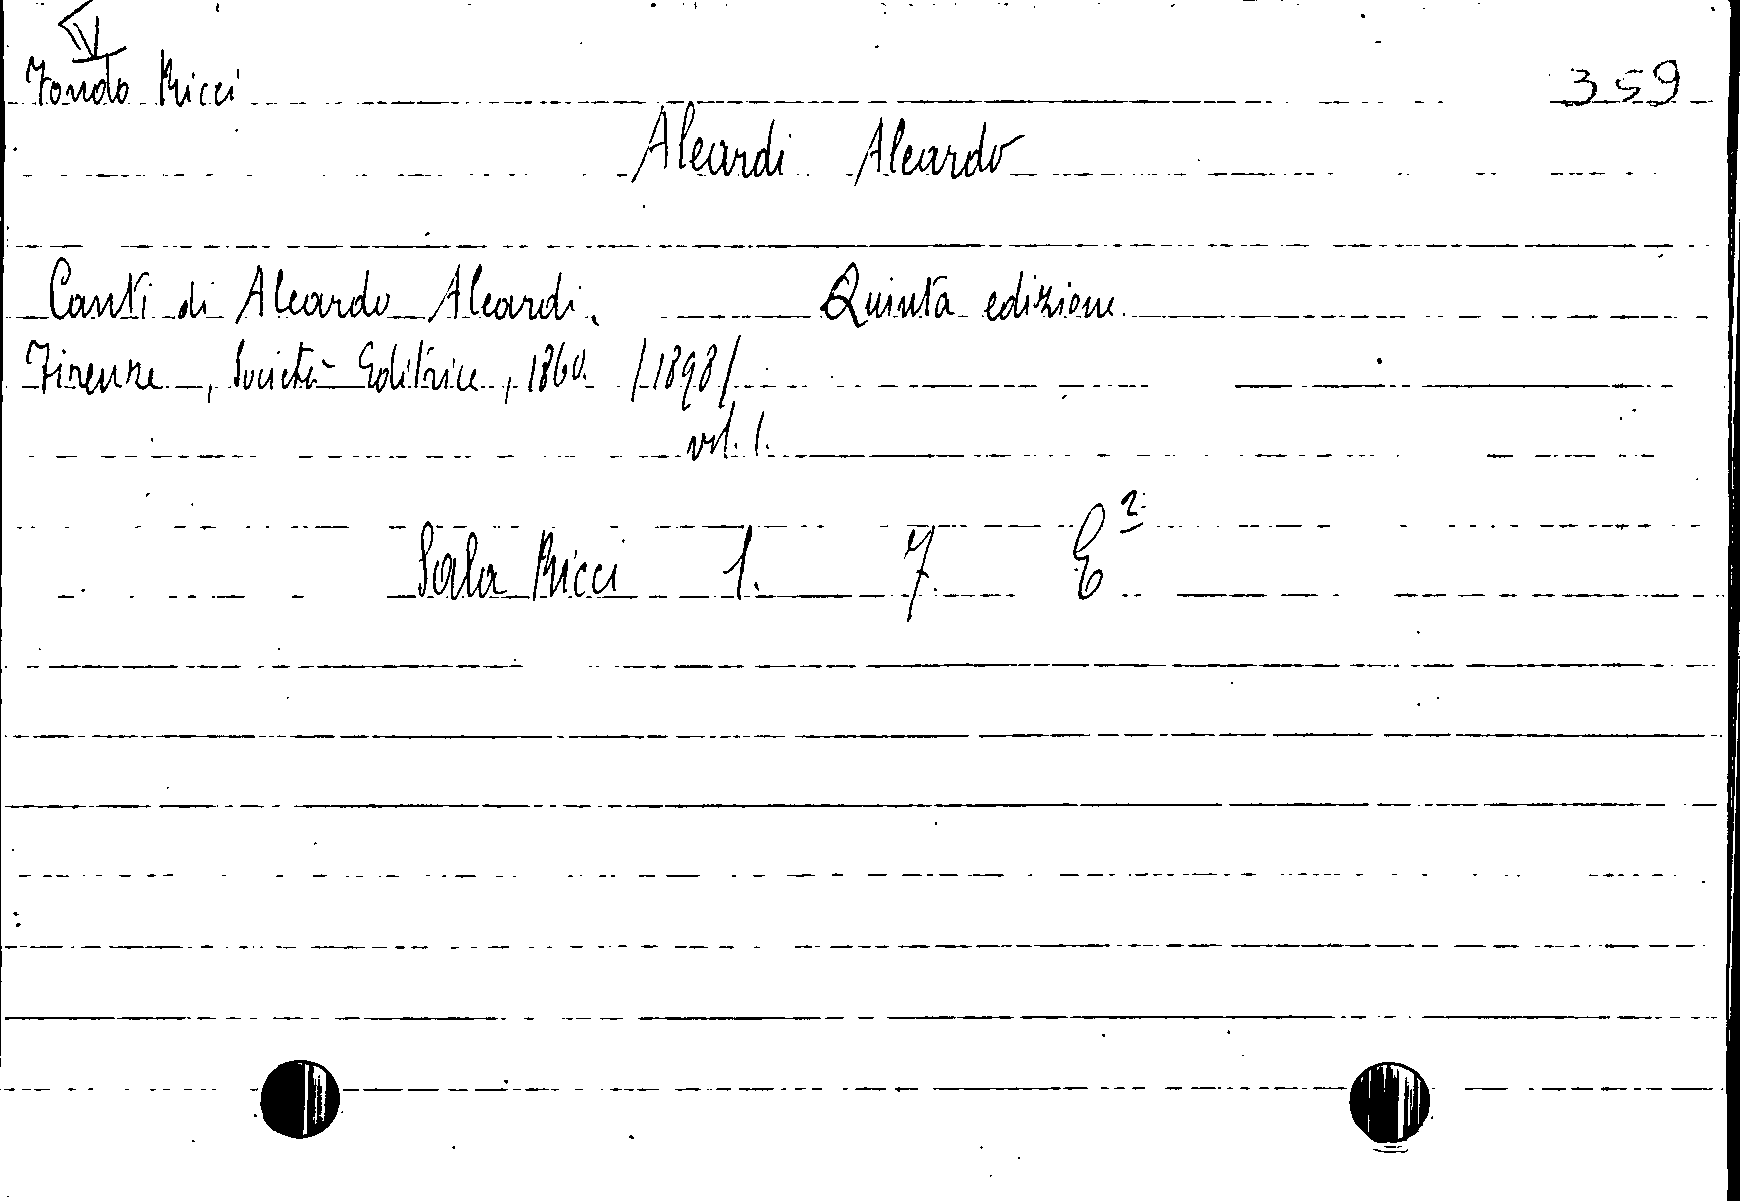 Fondo Ricci 359
Aleardi Aleardo
Canti di Aleardo Aleardi. Quinta edizione.
Firenze, Società Editrice, 1860. /1898/
vol. 1.
Sala Ricci 1. 7. E²